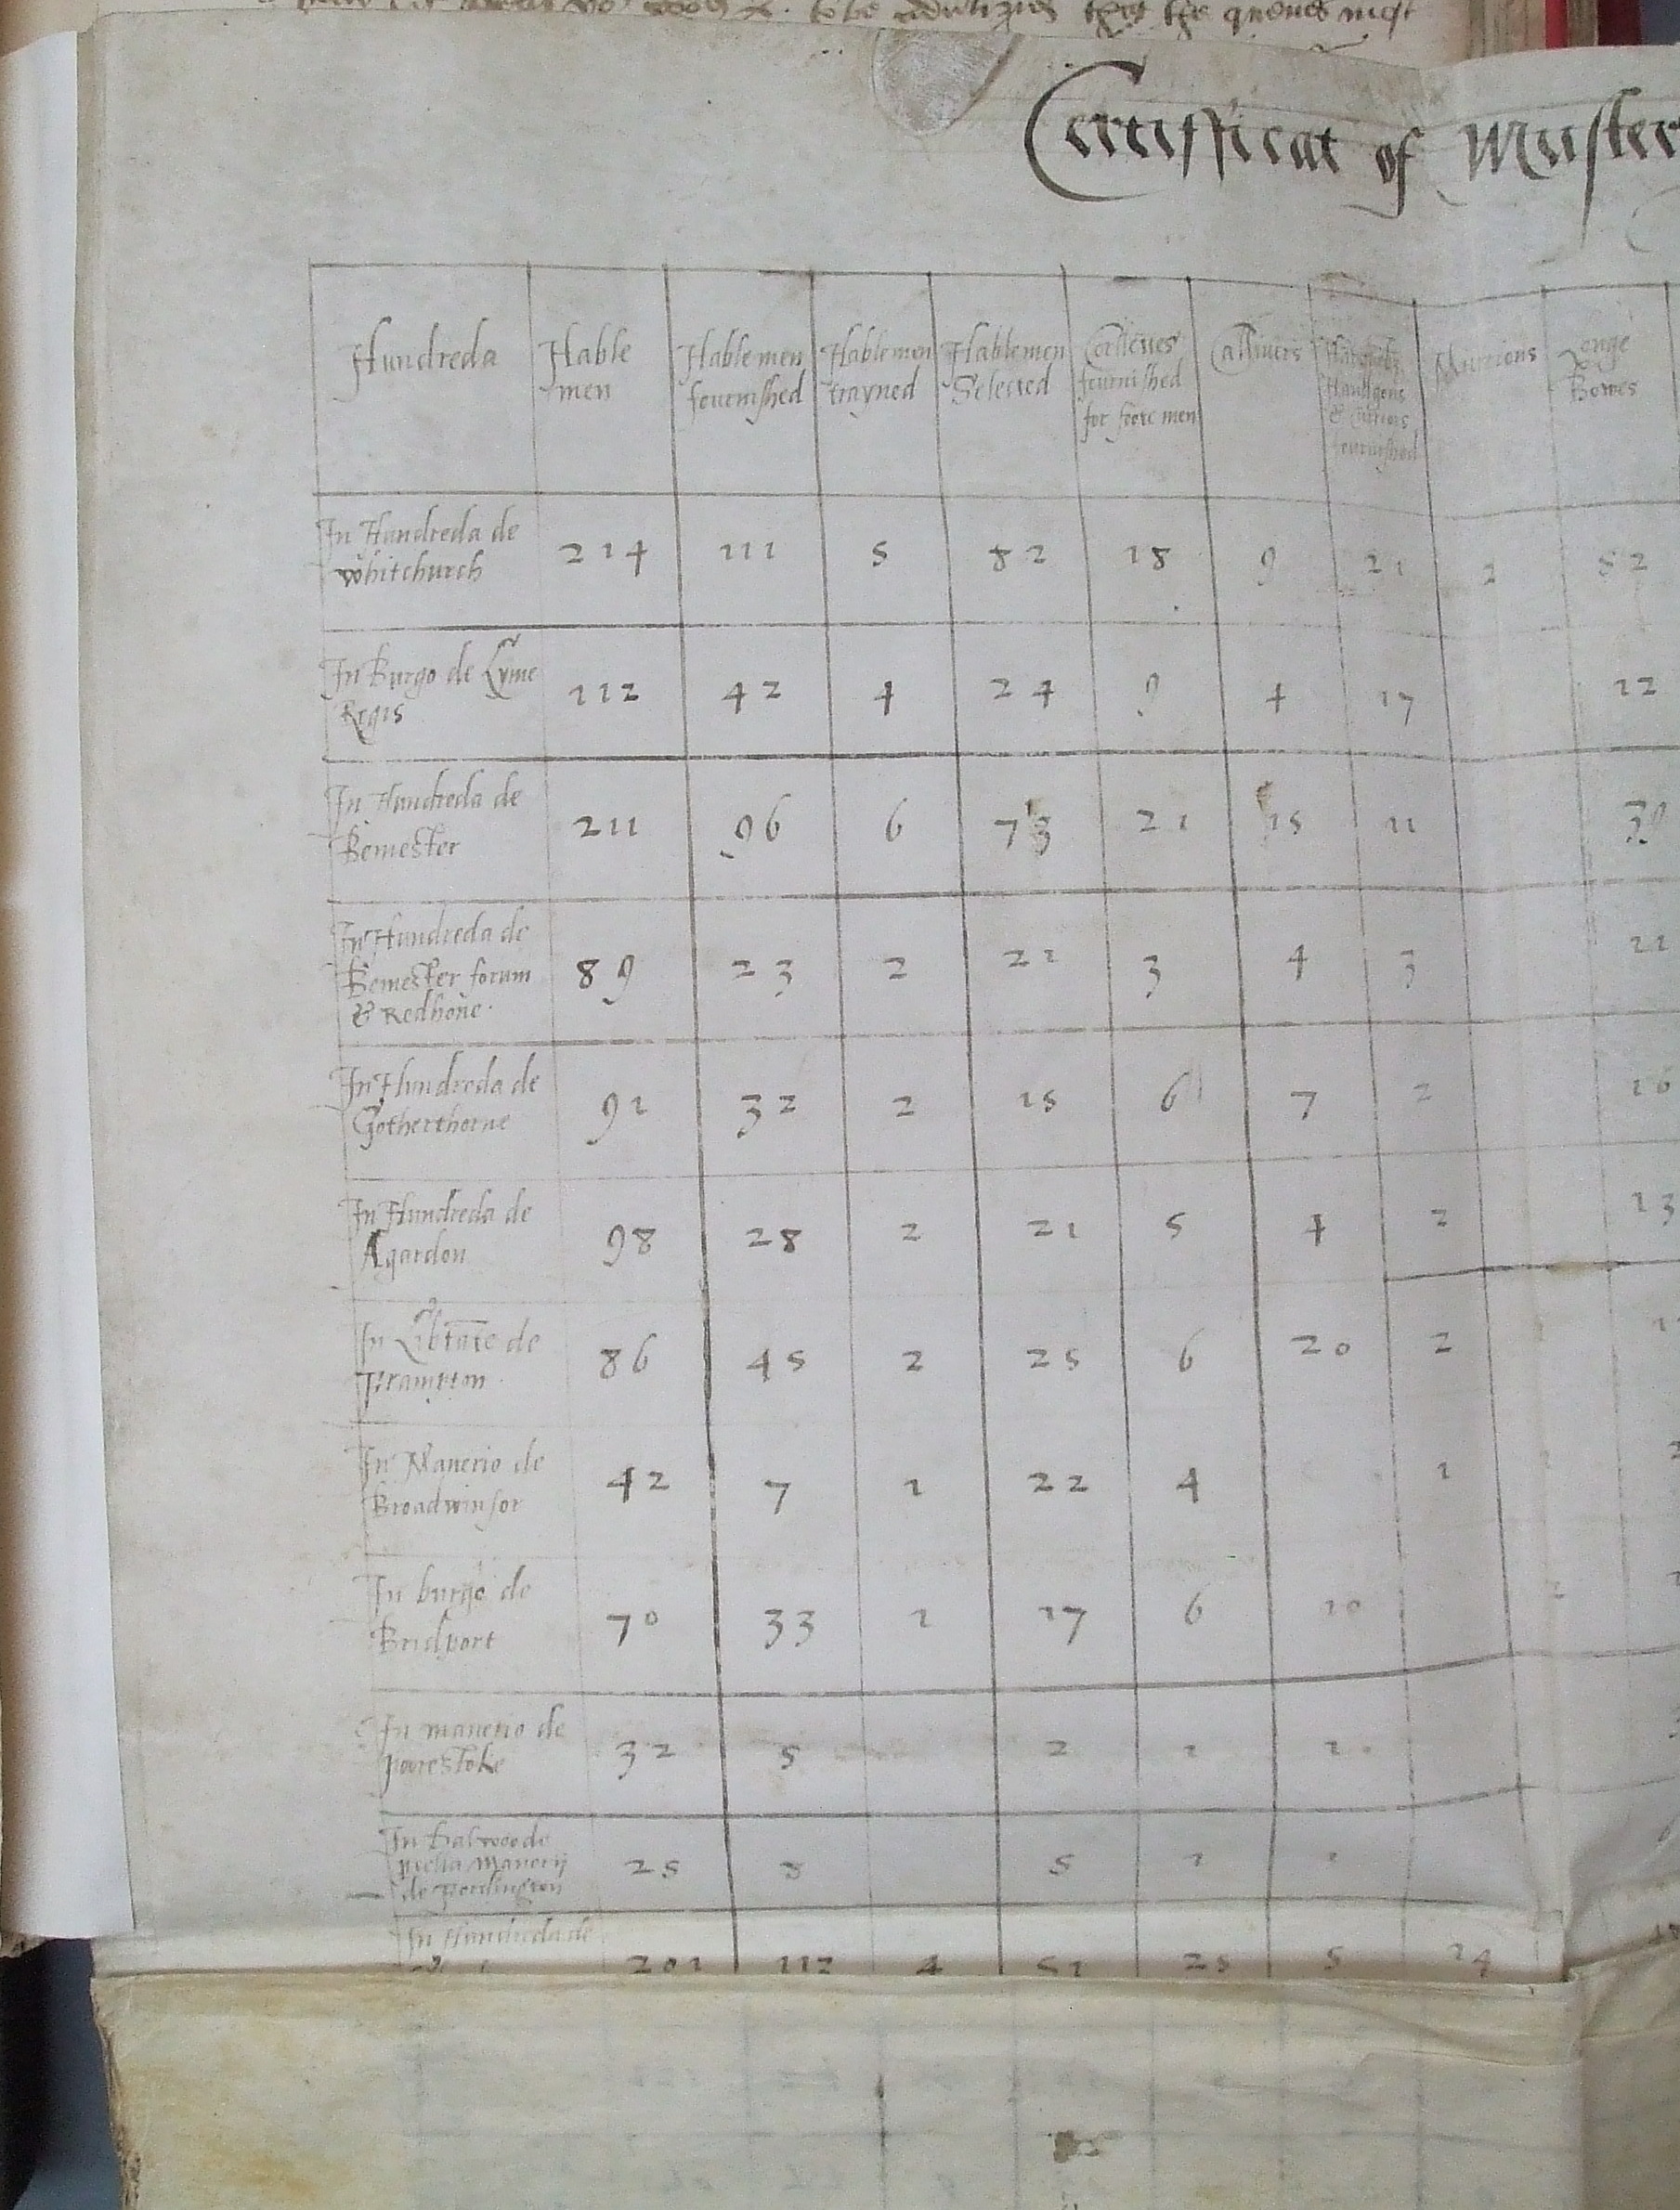 to be the quenes most
Certifficat of Muster
Hundreda
Hable
men
Hable men
fournished
Hable men
trayned
Hable men
Selected
fournished
for foote men
Callivers
fournished
Murrions
Longe
Bowes
In Hundreda de
Whitchurch
214 111 5 82 18 9 21 2 52
In Burgo de Lyme
Regis
112 42 4 24 9 4 17 12
In Hundreda de
Bemester
211 96 6 73 21 15 11
In Hundreda de
Bemester forum
& Redhone
89 23 2 21 3 4 3 21
In Hundreda de
Gotherthorne
91 32 2 15 6 7 2 16
In Hundreda de
Agardon
98 28 2 21 5 4 2 13
In Libtate de
Frampton
86 45 2 25 6 20 2
In Manerio de
Broadwinsor
42 7 1 22 4 1
In burgo de
Bridport
70 33 1 17 6 10
In manerio de
porestoke
32 5 2 1 1
In
Manerij
de
25 8 5 1 1
In Hundreda de
201 112 4 51 25 5 14